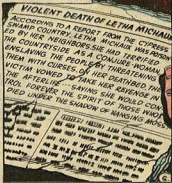 VIOLENT DEATH OF LETHA MICHAUX
ACCORDING TO A REPORT FROM THE CYPRESS
SWAMP COUNTRY, LETHA MICHAUX WAS KILL-
ED BY HER NEIGHBORS. SHE HAD TERRORIZED
THE COUNTRYSIDE AS A CONJURE WOMAN,
AND LAST THE PEOPLE BY THREATENING
THEM WITH CURSES OF HER DEATHBED THE
VICTIM VOWED TO TAKE HER REVENGE IN
THE AFTERLIFE... SAYING SHE WOULD CON-
TROL FOREVER THE SPIRIT OF THOSE WHO
DIED UNDER THE SHADOW OF HANGING MOSS.
6